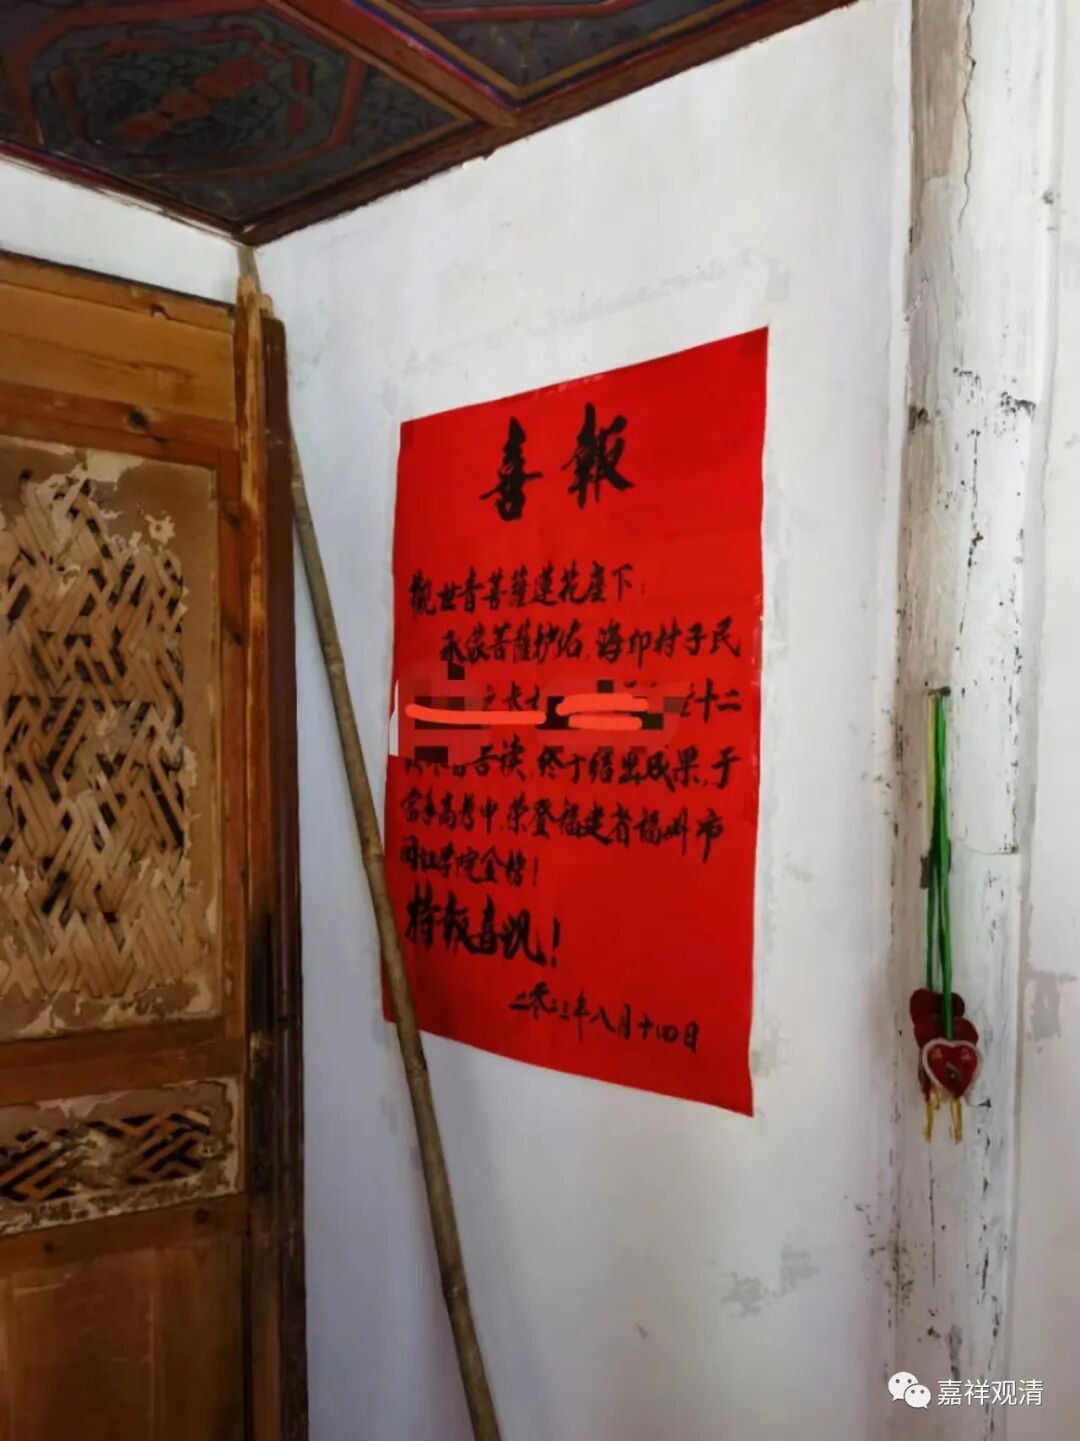 喜報
觀世音菩薩蓮花座下：
承蒙菩薩护佑，海印村子民
之长 十二
苦读，终于结出成果，于
當年高考中，荣登福建省福州市
闽江学院金榜！
特报喜讯！
二零二三年八月十四日
嘉祥观清